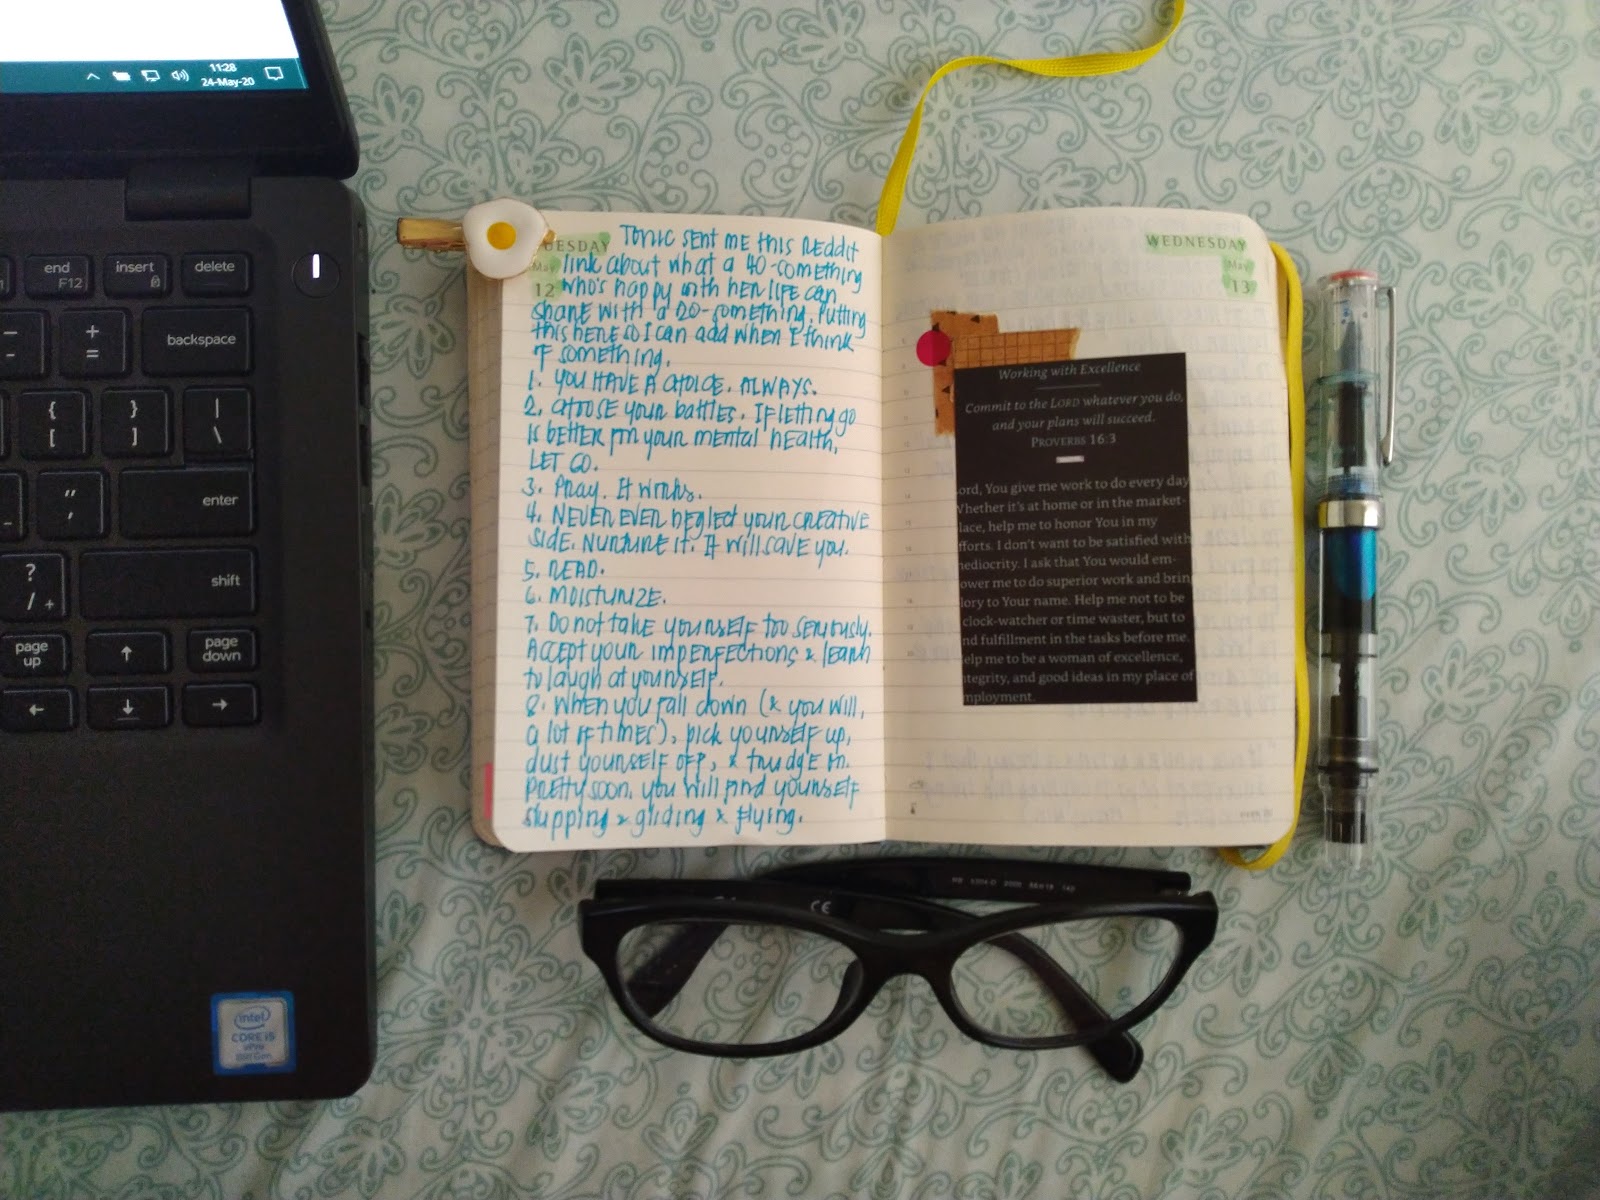 11:28
24-May-20
end
F12
insert
delete
+
=
backspace
{
[
}
]
|
\
"
,
enter
?
/
+
shift
page
up
page
down
intel
CORE i5
vPro
8th Gen
TUESDAY
May
12
Tonic sent me this Reddit
link about what a 40-something
who's happy with her life can
share with a 20-something. Putting
this here so I can add when I think
of something.
1. YOU HAVE A CHOICE. ALWAYS.
2. Choose your battles. If letting go
is better for your mental health,
LET GO.
3. Pray. It works.
4. NEVER EVER neglect your creative
side. Nurture it. It will save you.
5. READ.
6. MOISTURIZE.
7. Do not take yourself too seriously.
Accept your imperfections & learn
to laugh at yourself.
8. When you fall down (& you will,
a lot of times), pick yourself up,
dust yourself off, & trudge on.
Pretty soon, you will find yourself
skipping & gliding & flying.
WEDNESDAY
May
13
Working with Excellence
Commit to the LORD whatever you do,
and your plans will succeed.
PROVERBS 16:3
ord, You give me work to do every day
Whether it's at home or in the market-
lace, help me to honor You in my
fforts. I don't want to be satisfied with
mediocrity. I ask that You would em-
ower me to do superior work and bring
lory to Your name. Help me not to be
clock-watcher or time waster, but to
nd fulfillment in the tasks before me.
elp me to be a woman of excellence,
ntegrity, and good ideas in my place of
mployment.
CE